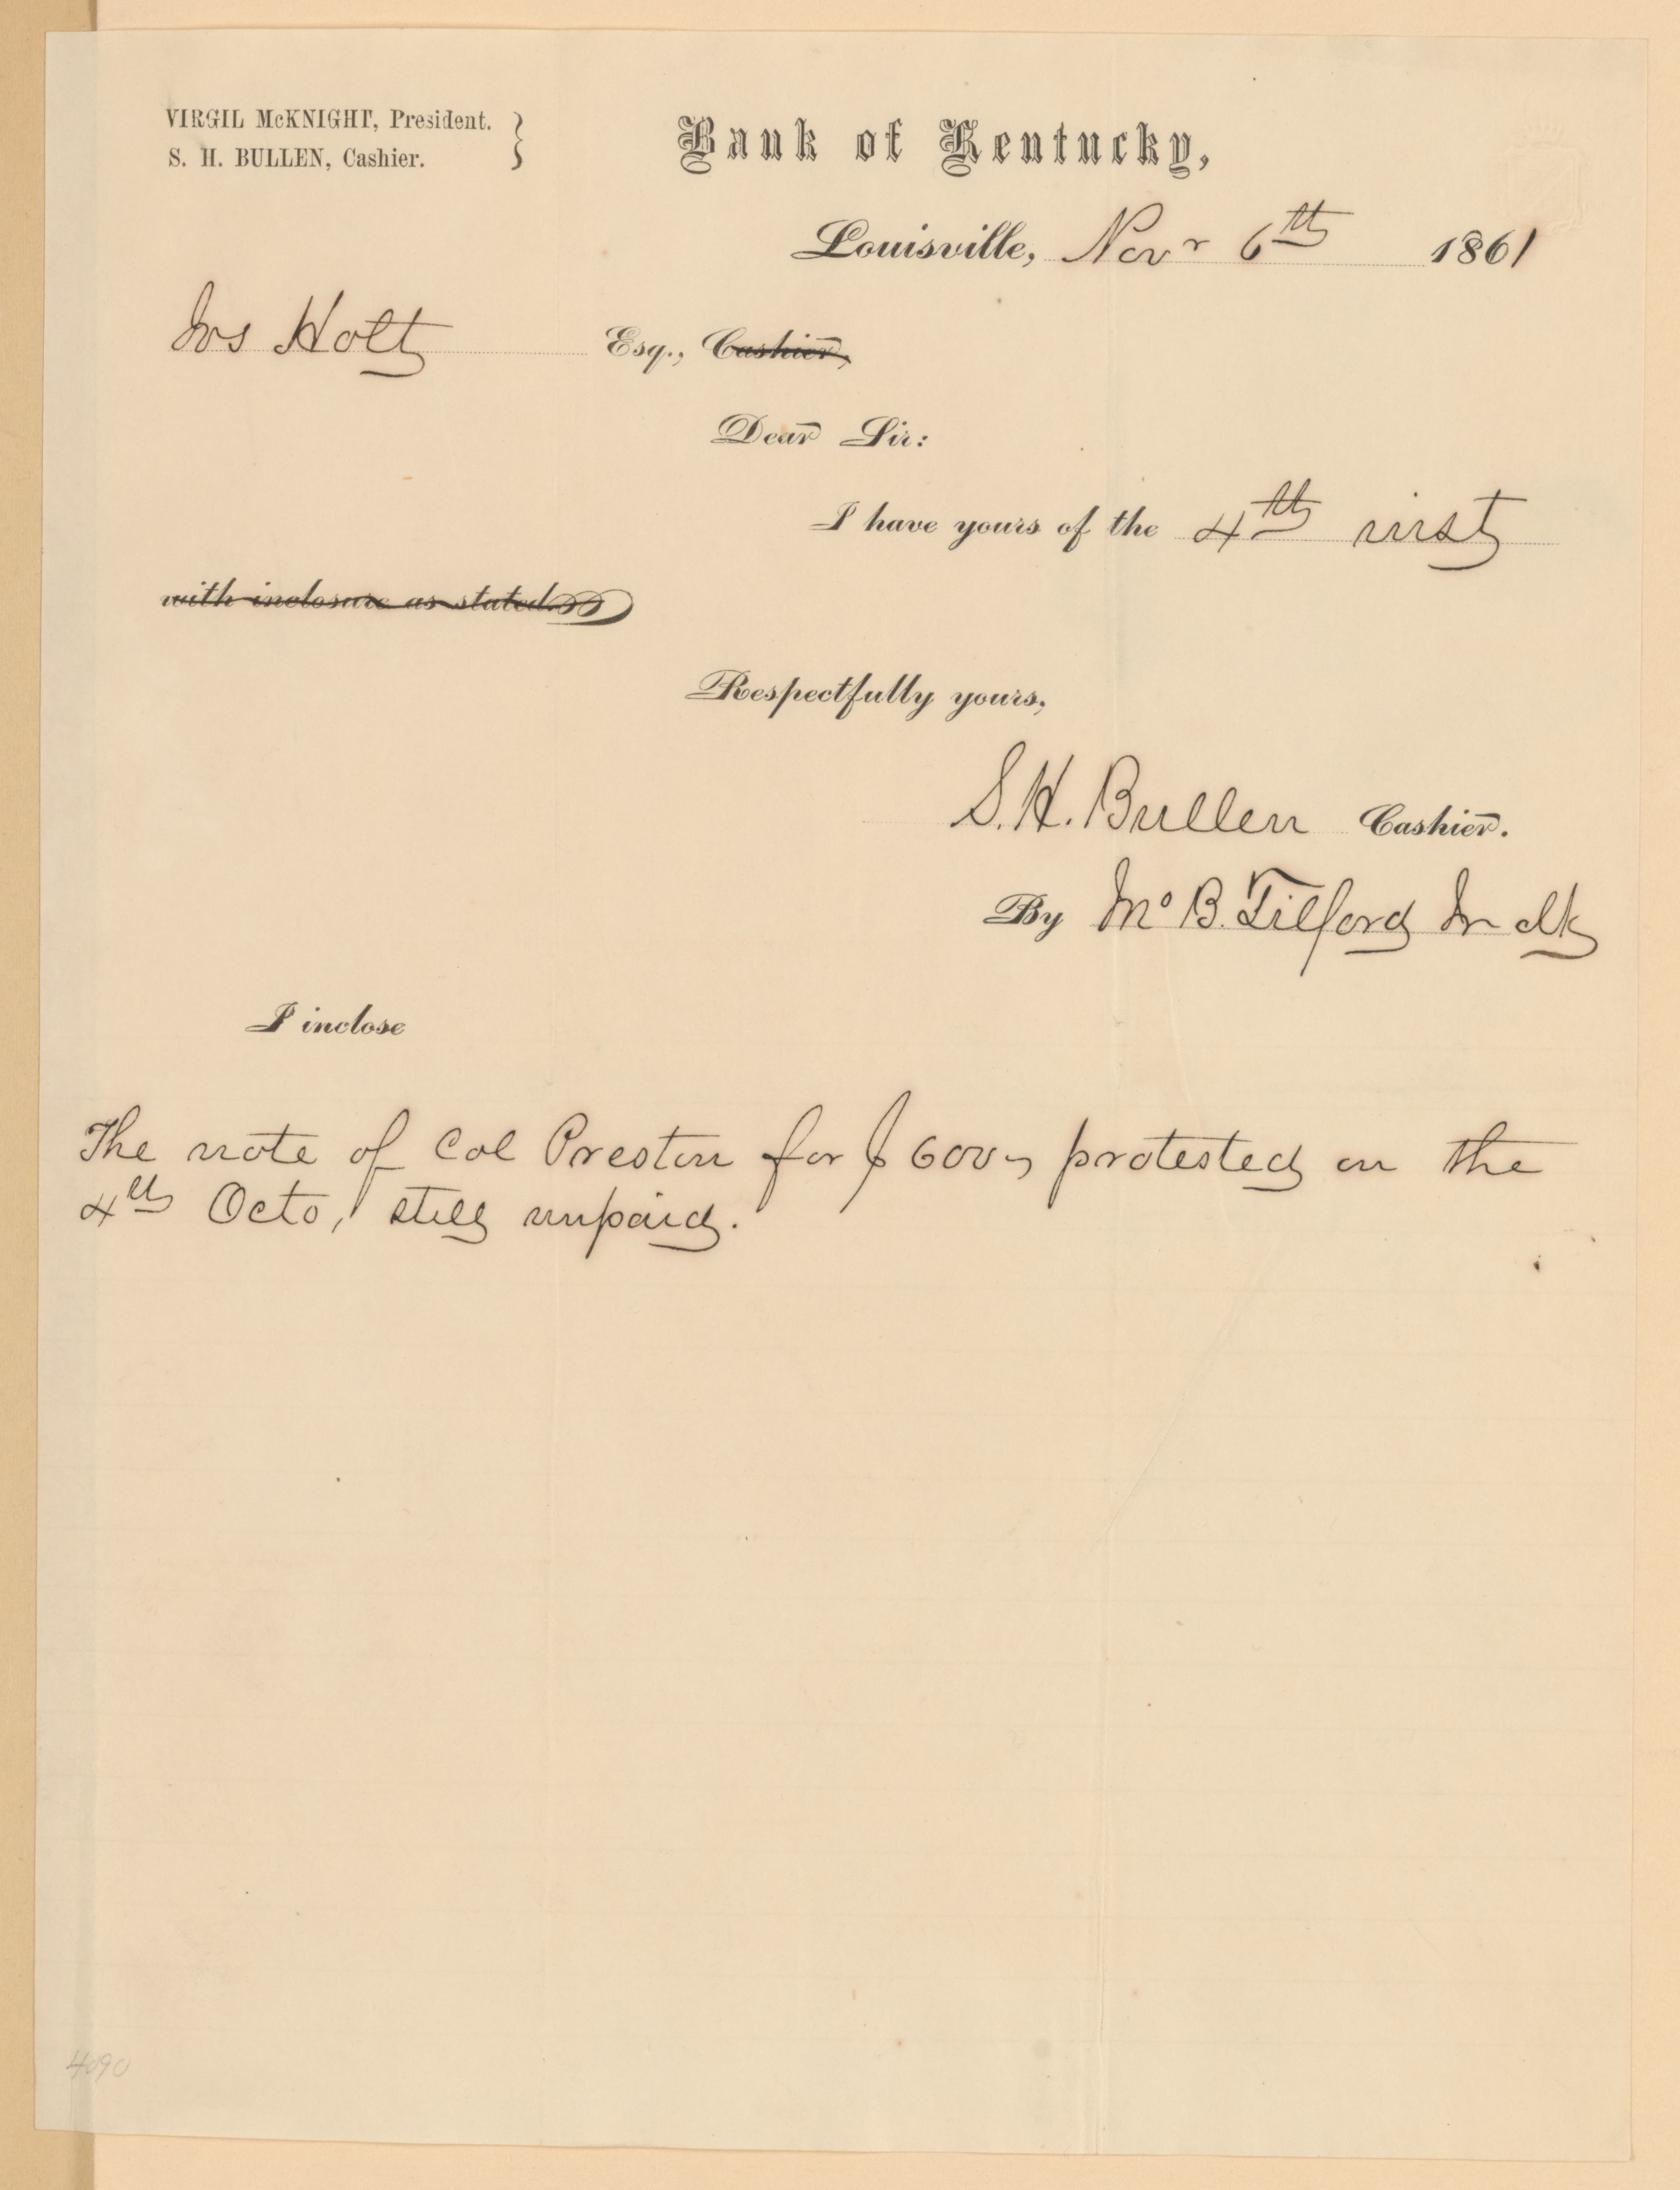 VIRGIL McKNIGHT, President.
S. H. BULLEN, Cashier.
Bank of Kentucky,
Louisville, Novr 6th 1861
Jos Holt Esq., Cashier,
Dear Sir:
I have yours of the 4th inst
with inclosure as stated.
Respectfully yours,
S. H. Bullen Cashier.
By Mc B. Tilford Jr clk
I inclose
The note of Col Preston for $600 protested on the
4th Octo, still unpaid.
4090